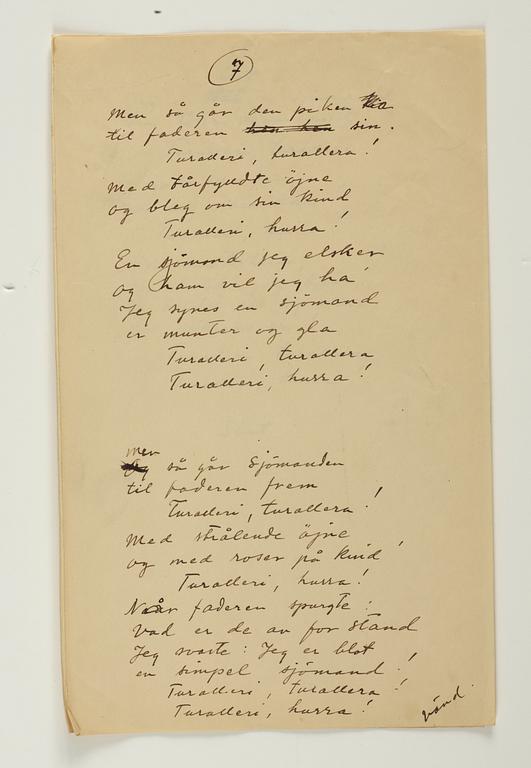 7
Men så går den piken
til faderen sin.
Turalleri, turallera!
Med tårfyldte öjne
og bleg om sin kind
Turalleri, hurra!
En sjömand jeg elsker
og ham vil jeg ha
Jeg synes en sjömand
er munter og gla
Turalleri, turallera
Turalleri, hurra!
men
så går Sjömanden
til faderen frem
Turalleri, turallera!
Med strålende öjne,
og med roser på kind
Turalleri, hurra!
Når faderen spurgte:
Vad er de av for stand
Jeg svarte: Jeg er blot
en simpel sjömand!
Turalleri, turallera!
Turalleri, hurra!
vänd.